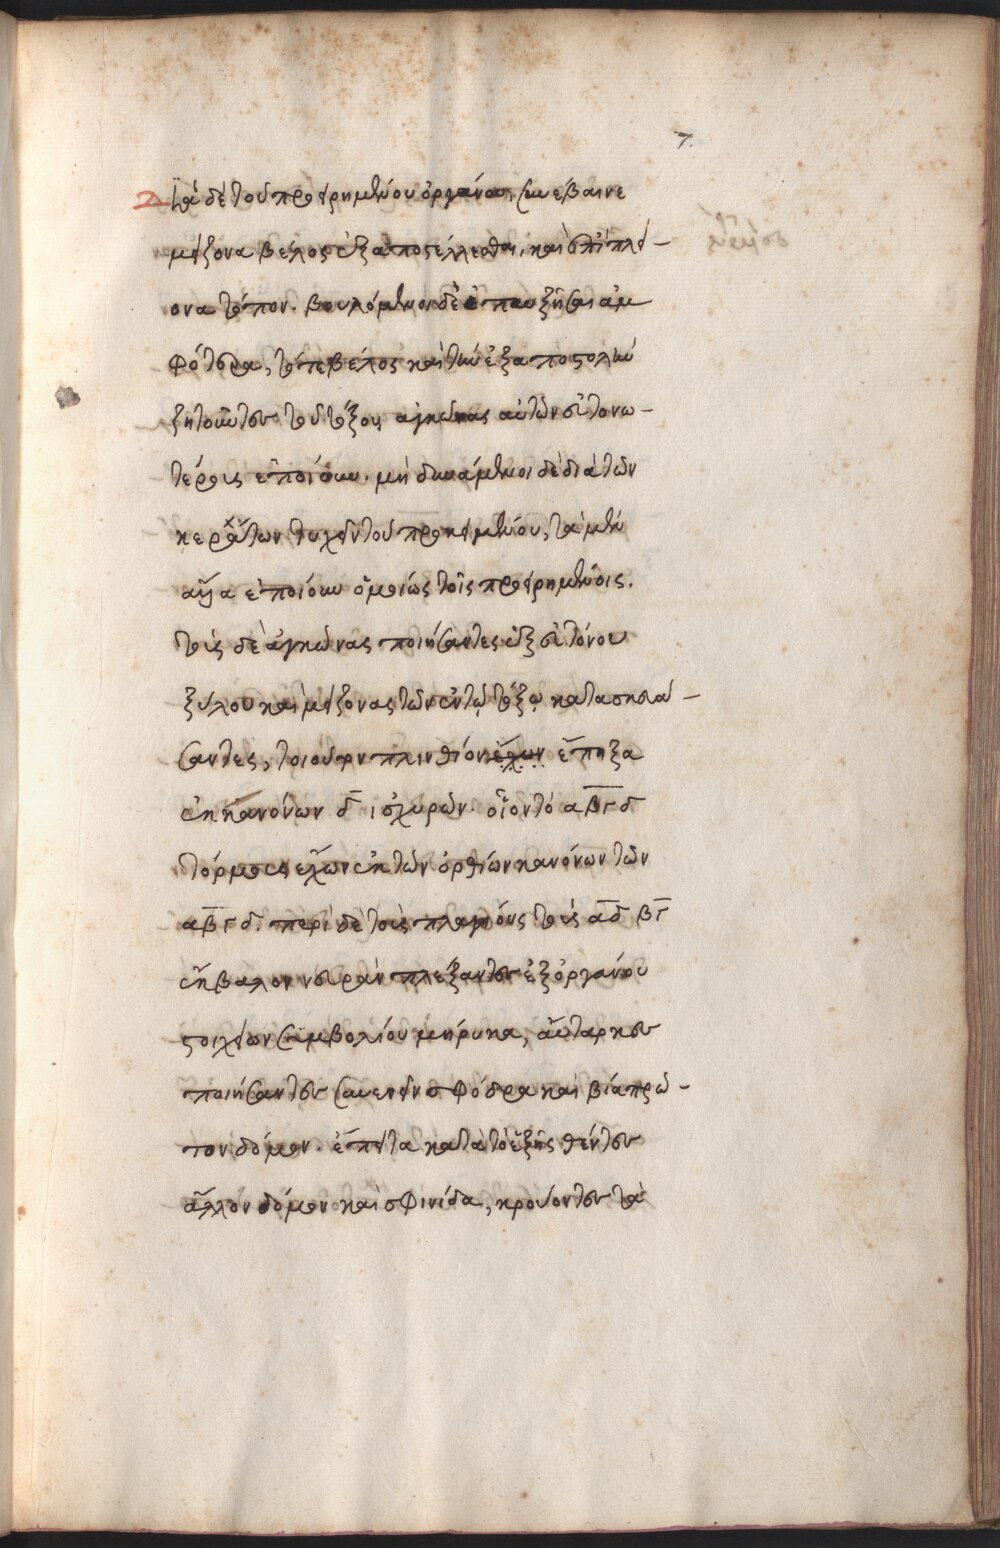 7.
Διὰ δὲ τοῦ προειρημένου ὀργάνου, συνέβαινε
μείζονα βέλος ἐξαποστέλλεσθαι, καὶ ἐπὶ πλεί-
ονα τόπον. βουλόμενοι δὲ ἐπαυξῆσαι ἀμ
φότερα, τότε βέλος καὶ τὴν ἐξαποστολὴν
ζητοῦντες τοῦ τόξου ἀγκῶνας αὐτῶν εὐτονω-
τέρους ἐποίουν. μὴ δυνάμενοι δὲ διὰ τῶν
κεράτων τυχεῖν τοῦ προκειμένου, τὰ μὲν
ἄλλα ἐποίουν ὁμοίως τοῖς προειρημένοις.
τοὺς δὲ ἀγκῶνας ποιήσαντες ἐξ εὐτόνου
ξύλου καὶ μείζονας τῶν ἐν τῷ τόξῳ κατασκευά-
σαντες, τοιοῦτον πλινθίον ἔχων ἔπηξα
ἐκ κανόνων δ ἰσχυρῶν. οἷον τὸ αβγδ
τόρμους ἔχων ἐκ τῶν ὀρθίων κανόνων τῶν
αβ γδ. περὶ δὲ τοὺς πλαγίους τοὺς αδ βγ
ἔβαλον νευρὰν πλέξαντες ἐξ ὀργάνου
στοιχείων συμβολίου μήρυκα, αὔταρκες
ποιήσαντες συνεπεῖν σφόδρα καὶ βίᾳ πρῶ-
τον δόμον. ἔπειτα κατὰ τὸ ἑξῆς θέντες
ἄλλον δόμον καὶ σφινίδα, κρούοντες τὰ